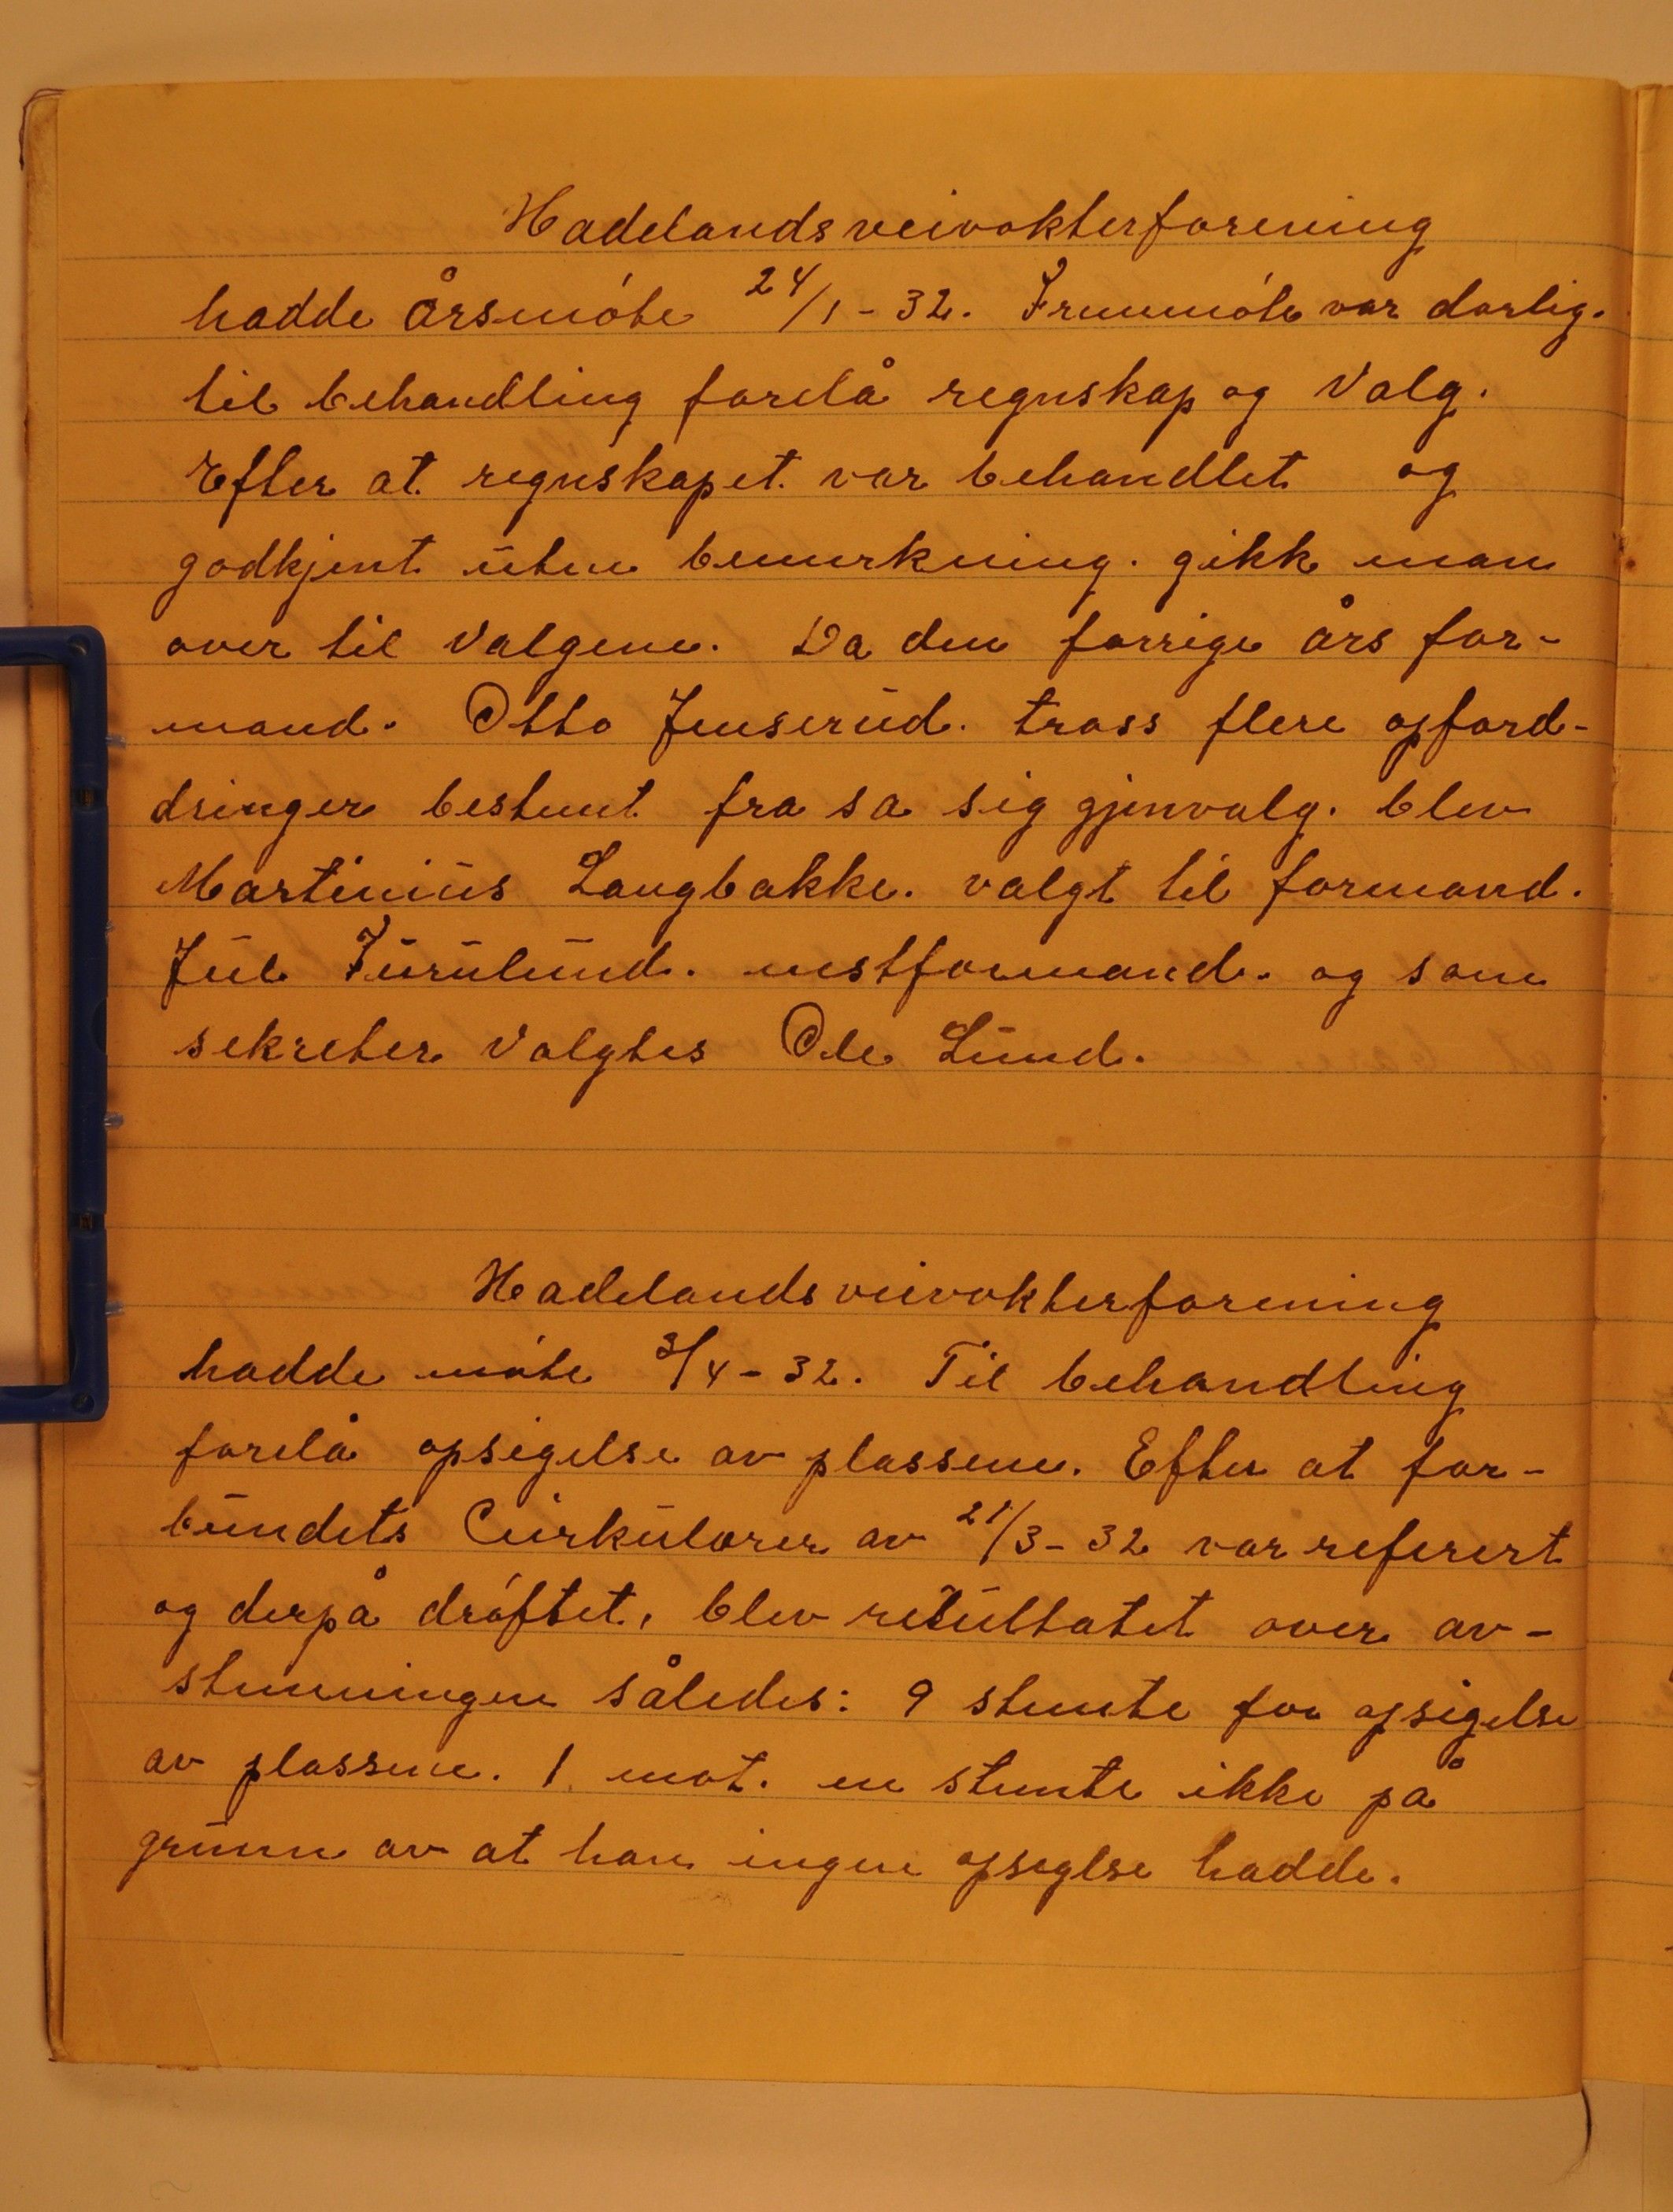 Hadelands veivokterforening
hadde årsmóte 24/1-32. Fremmóte var dorlig.
til behandling forelå regnskap og Valg.
Efter at regnskapet var behandlet og
godkjent uten bemerkning. gikk man
over til Valgene. Da den forrige års for-
mand. Otto Jenserud. tross flere opford-
dringer bestemt fra sa sig gjenvalg. blev
Martinius Langbakke. valgt til formand.
Jul Furulund. nestformand. og som
sekreter Valgtes Ole Lund.
Hadelands veivokterforening
hadde móte 3/4-32. Til behandling
forelå opsigelse av plassene. Efter at for-
bundets Cirkulærer av 21/3-32 var referert
og derpå dróftet, blev resultatet over av-
stemningen således: 9 stemte for opsigelse
av plassene. 1 mot. en stemte ikke på
grunn av at han ingen opseglse hadde.